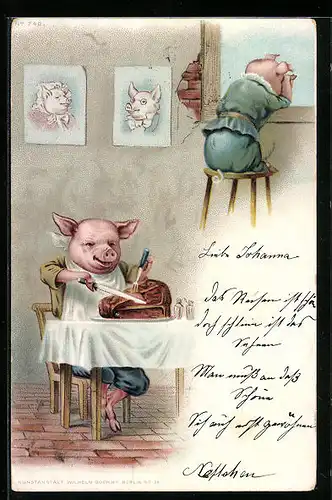 No 740.
Liebe Johanna
das Reisen ist schön
doch schöner ist das
Sehnen
Man muß an daß
Schöne
Sich auch erst gewöhnen
KUNSTANSTALT WILHELM BOEHME, BERLIN ST. 26